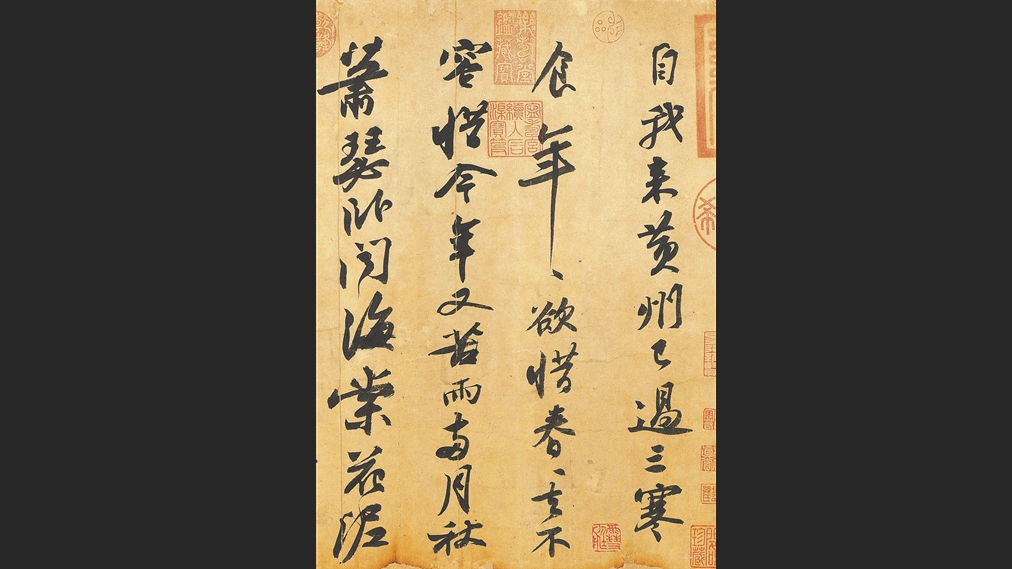 自我来黄州已過三寒
食年〻欲惜春〻去不
容惜今年又苦雨两月秋
蕭瑟卧聞海棠花泥